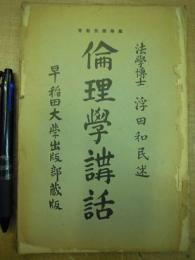 法學博士 浮田和民述
倫理學講話
早稻田大學出版部蔵版